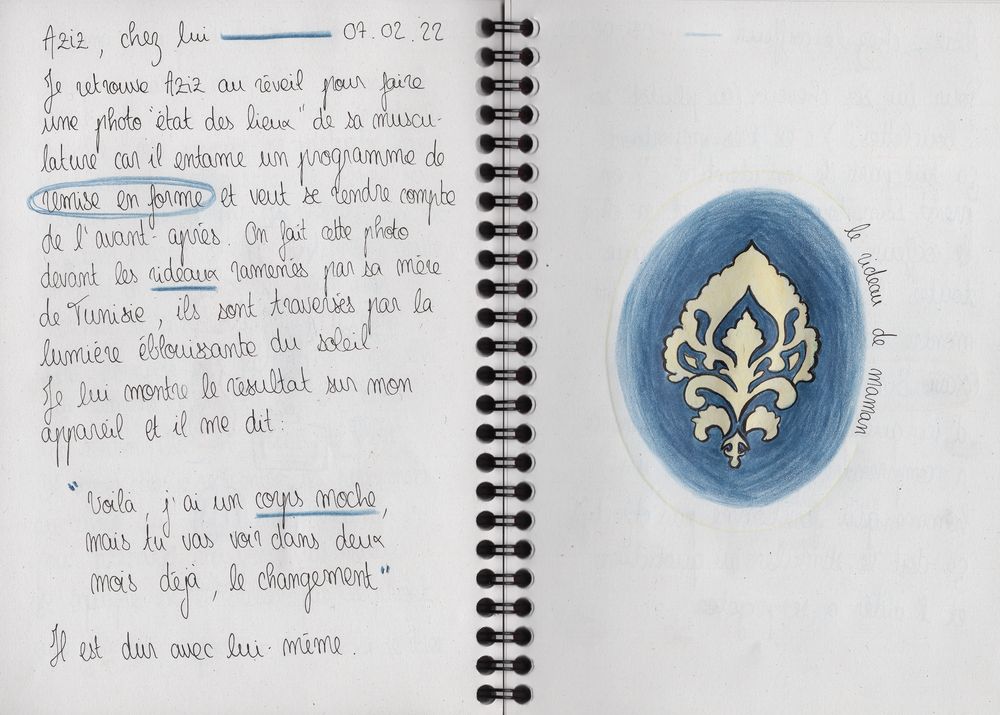 Aziz, chez lui 07.02.22
Je retrouve Aziz au réveil pour faire
une photo "état des lieux" de sa muscu-
lature car il entame un programme de
remise en forme et veut se rendre compte
de l'avant-après. On fait cette photo
devant les rideaux ramenés par sa mère
de Tunisie, ils sont traversés par la
lumière éblouissante du soleil.
Je lui montre le résultat sur mon
appareil et il me dit :
"Voilà, j'ai un corps moche,
mais tu vas voir dans deux
mois déjà, le changement"
Il est dur avec lui-même.
le rideau de maman